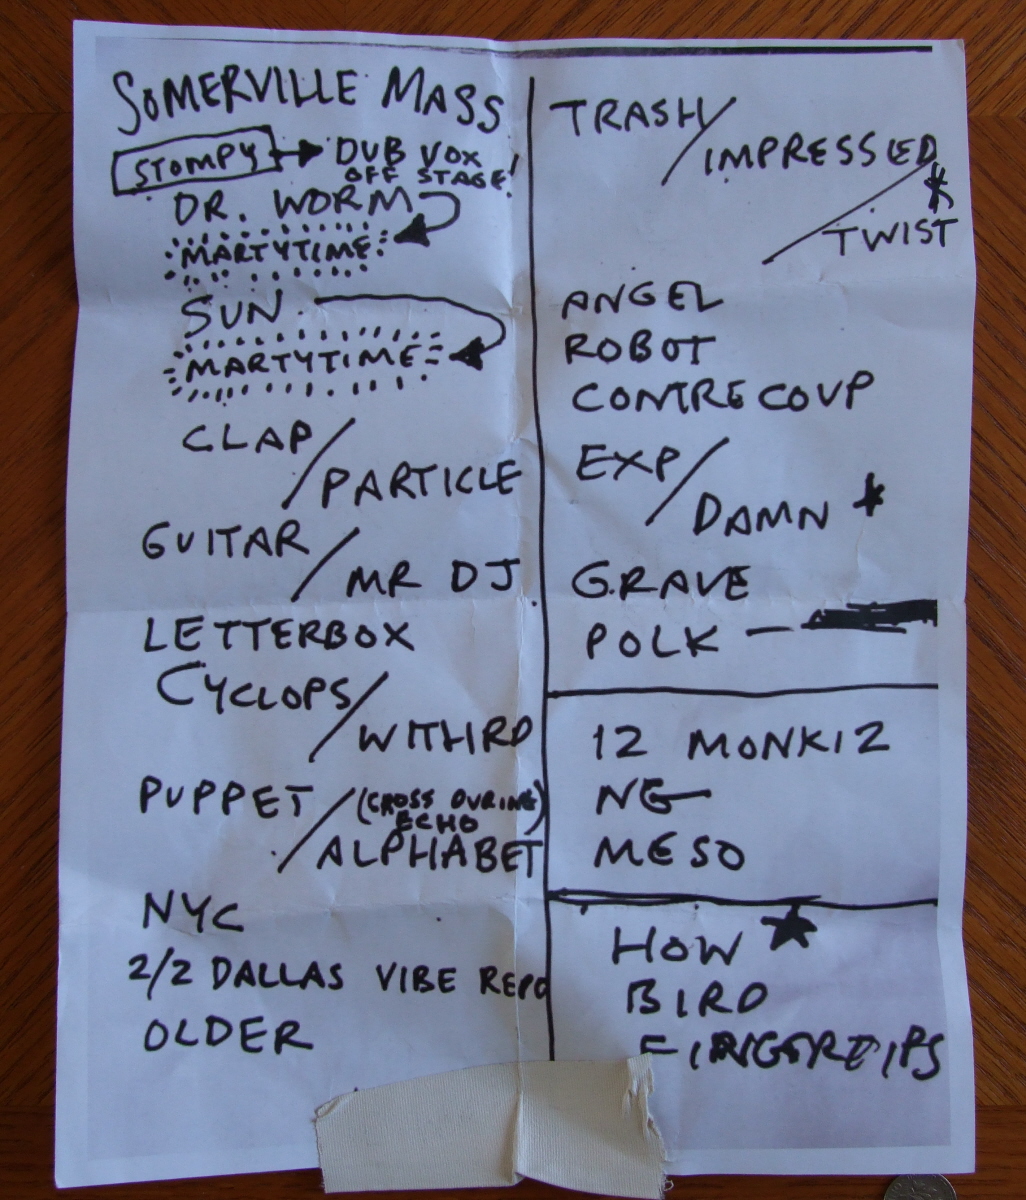 SOMERVILLE MASS
STOMPY → DUB VOX
OFF STAGE!
DR. WORM
MARTYTIME
SUN
MARTYTIME
CLAP/
PARTICLE
GUITAR/
MR DJ
LETTERBOX
CYCLOPS/
WITHIRD
PUPPET/
(CROSS DURING
ECHO)
ALPHABET
NYC
2/2 DALLAS VIBE REPO
OLDER
TRASH/
IMPRESSED
/TWIST *
ANGEL
ROBOT
CONTRECOUP
EXP/
DAMN *
GRAVE
POLK —
12 MONKIZ
NG
MESO
HOW ★
BIRD
FINGERTIPS